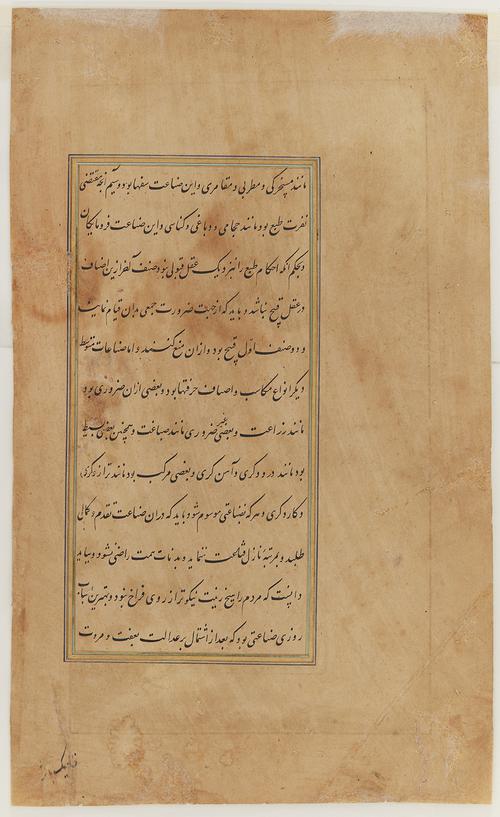 مانند مسخرگی و مطربی و مقامری و این صناعت سفها بود و سیم آنچه مقتضی
نفرت طبع بود مانند حجامی و دباغی و کناسی و این صناعت فرومایگان
و بحکم آنکه احکام طبع را نزدیک عقل قبولی نبود صنف آخر ازین اصناف
در عقل قبیح نباشد و باید که از جهت ضرورت جمعی بدان قیام نمایند
و دو صنف اول قبیح بود و ازان منع کنند و اما صناعات متوسط
دیگر انواع مکاسب و اصناف حرفتها بود و بعضی ازان ضروری بود
مانند زراعت و بعضی غیر ضروری مانند صباغت و همچنین بعضی بسیط
بود مانند درودگری و آهن گری و بعضی مرکب بود مانند ترازوگری
و کاردگری و هر که بصناعتی موسوم شود باید که دران صناعت تقدم و کمال
طلبد و بمرتبه نازل قناعت ننماید و بدنائت همت راضی نشود و بباید
دانست که مردم را هیچ زینت نیکوتر از روی فراخ نبود و بهترین اسباب
روزی صناعتی بود که بعد از اشتمال بر عدالت بعفت و مروت